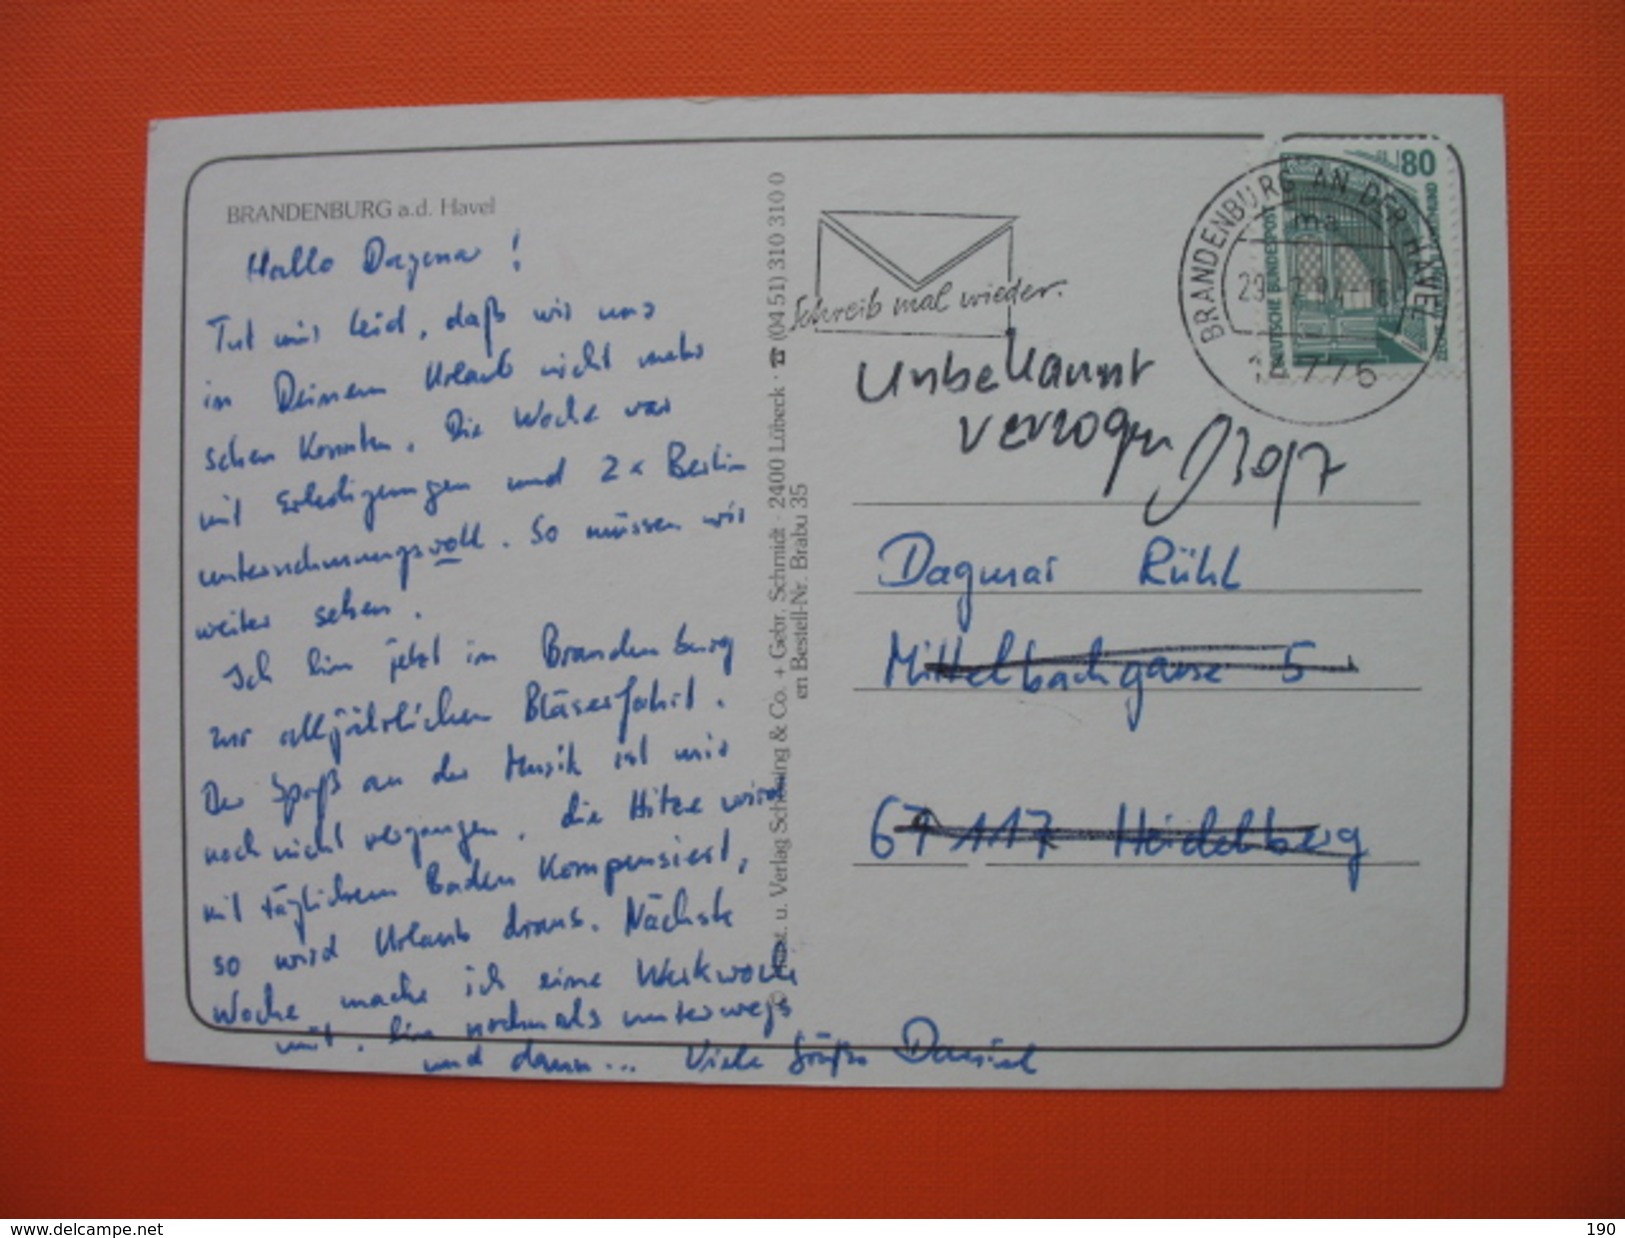 BRANDENBURG a.d. Havel
Hallo Dagmar!
Tut mir leid, daß wir uns
in Deinem Urlaub nicht mehr
sehen konnten. Die Woche war
mit Erledigungen und 2x Berlin
unternehmungsvoll. So müssen wir
weiter sehen.
Ich bin jetzt in Brandenburg
zur alljährlichen Bläserfahrt.
Der Spaß an der Musik ist mir
noch nicht vergangen, die Hitze wird
mit täglichem Baden kompensiert,
so wird Urlaub draus. Nächste
Woche mache ich eine Werkwoche
mit, bin nochmals unterwegs
und dann... Viele Grüße Daniel
u. Verlag Schöning & Co. + Gebr. Schmidt · 2400 Lübeck · ☎ (04 51) 310 310 0
en Bestell-Nr. Brabu 35
Schreib mal wieder.
80
DEUTSCHE BUNDESPOST
BRANDENBURG AN DER HAVEL
776
Unbekannt
verzogen 30/7
Dagmar Rühl
Mittelbachgasse 5
69117 Heidelberg
www.delcampe.net
190